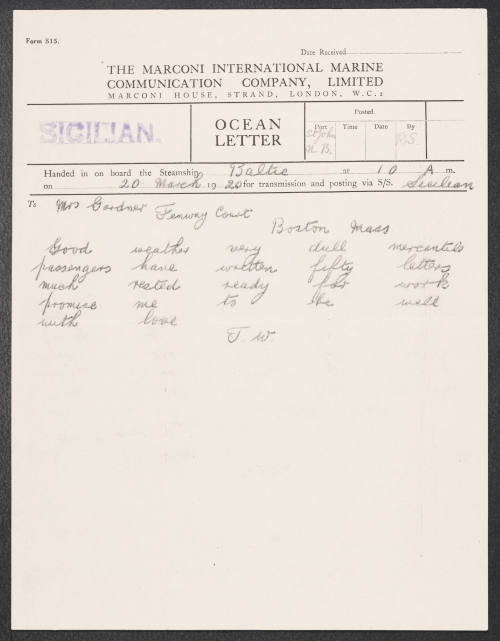 Form 515.
Date Received
THE MARCONI INTERNATIONAL MARINE
COMMUNICATION COMPANY, LIMITED
MARCONI HOUSE, STRAND, LONDON, W.C.2
SICILIAN.
OCEAN
LETTER
Posted.
Port Time Date By
St John
N.B.
R.S.
Handed in on board the Steamship Baltic at 10 A. m.
on 20 March 1920 for transmission and posting via S/S. Sicilian
To Mrs Gardner Fenway Court
Boston Mass
Good weather very dull mercantile
passengers have written fifty letters
much rested ready for work
promise me to be well
with love
T. W.